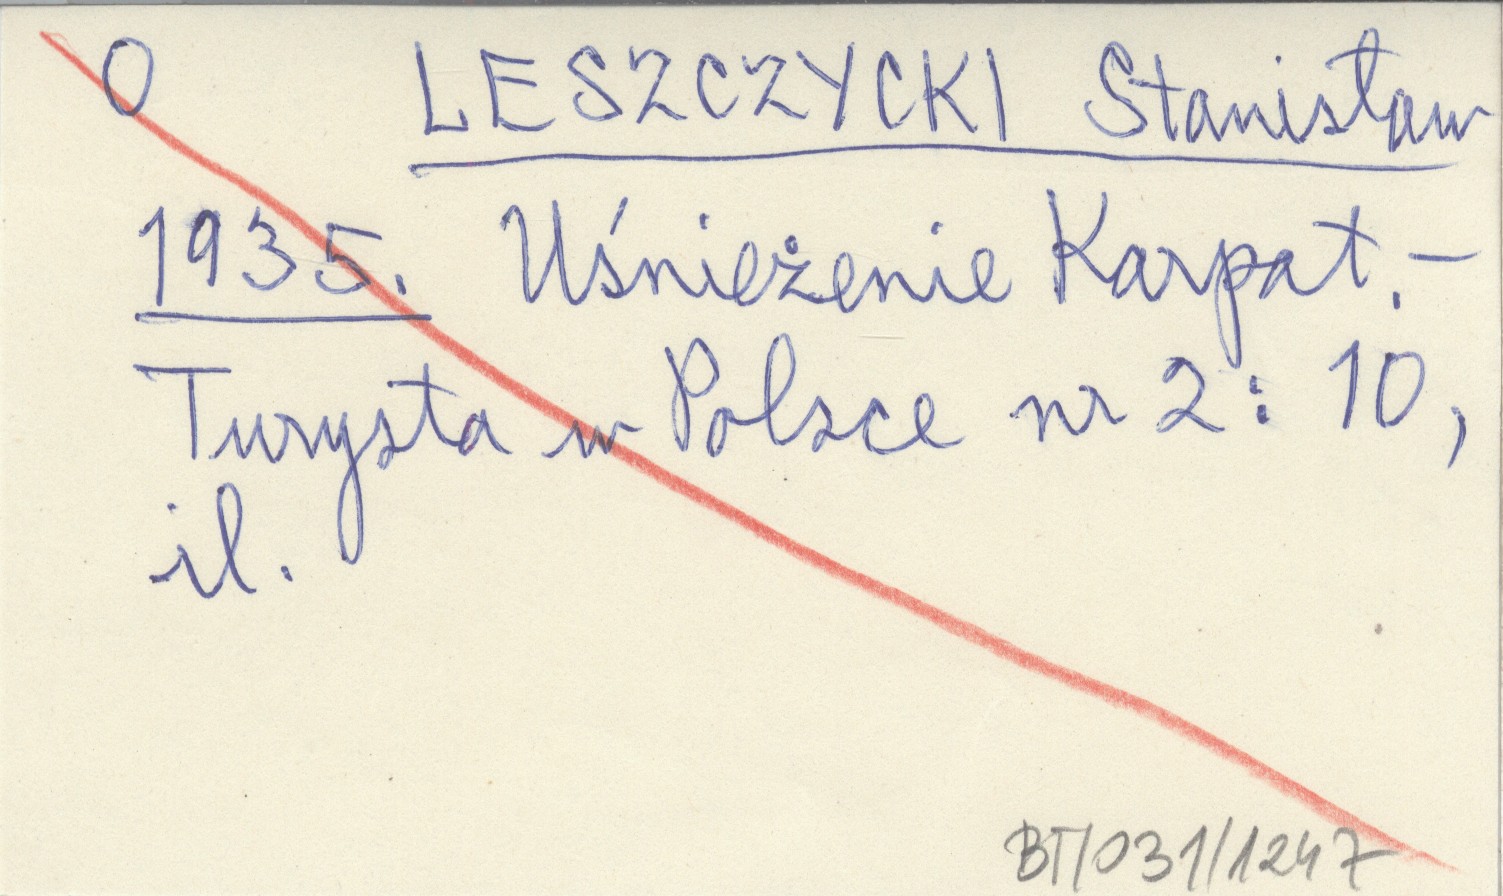 O LESZCZYCKI Stanisław
1935. Uśnieżenie Karpat. -
Turysta w Polsce nr 2 : 10,
il.
BT/031/1247